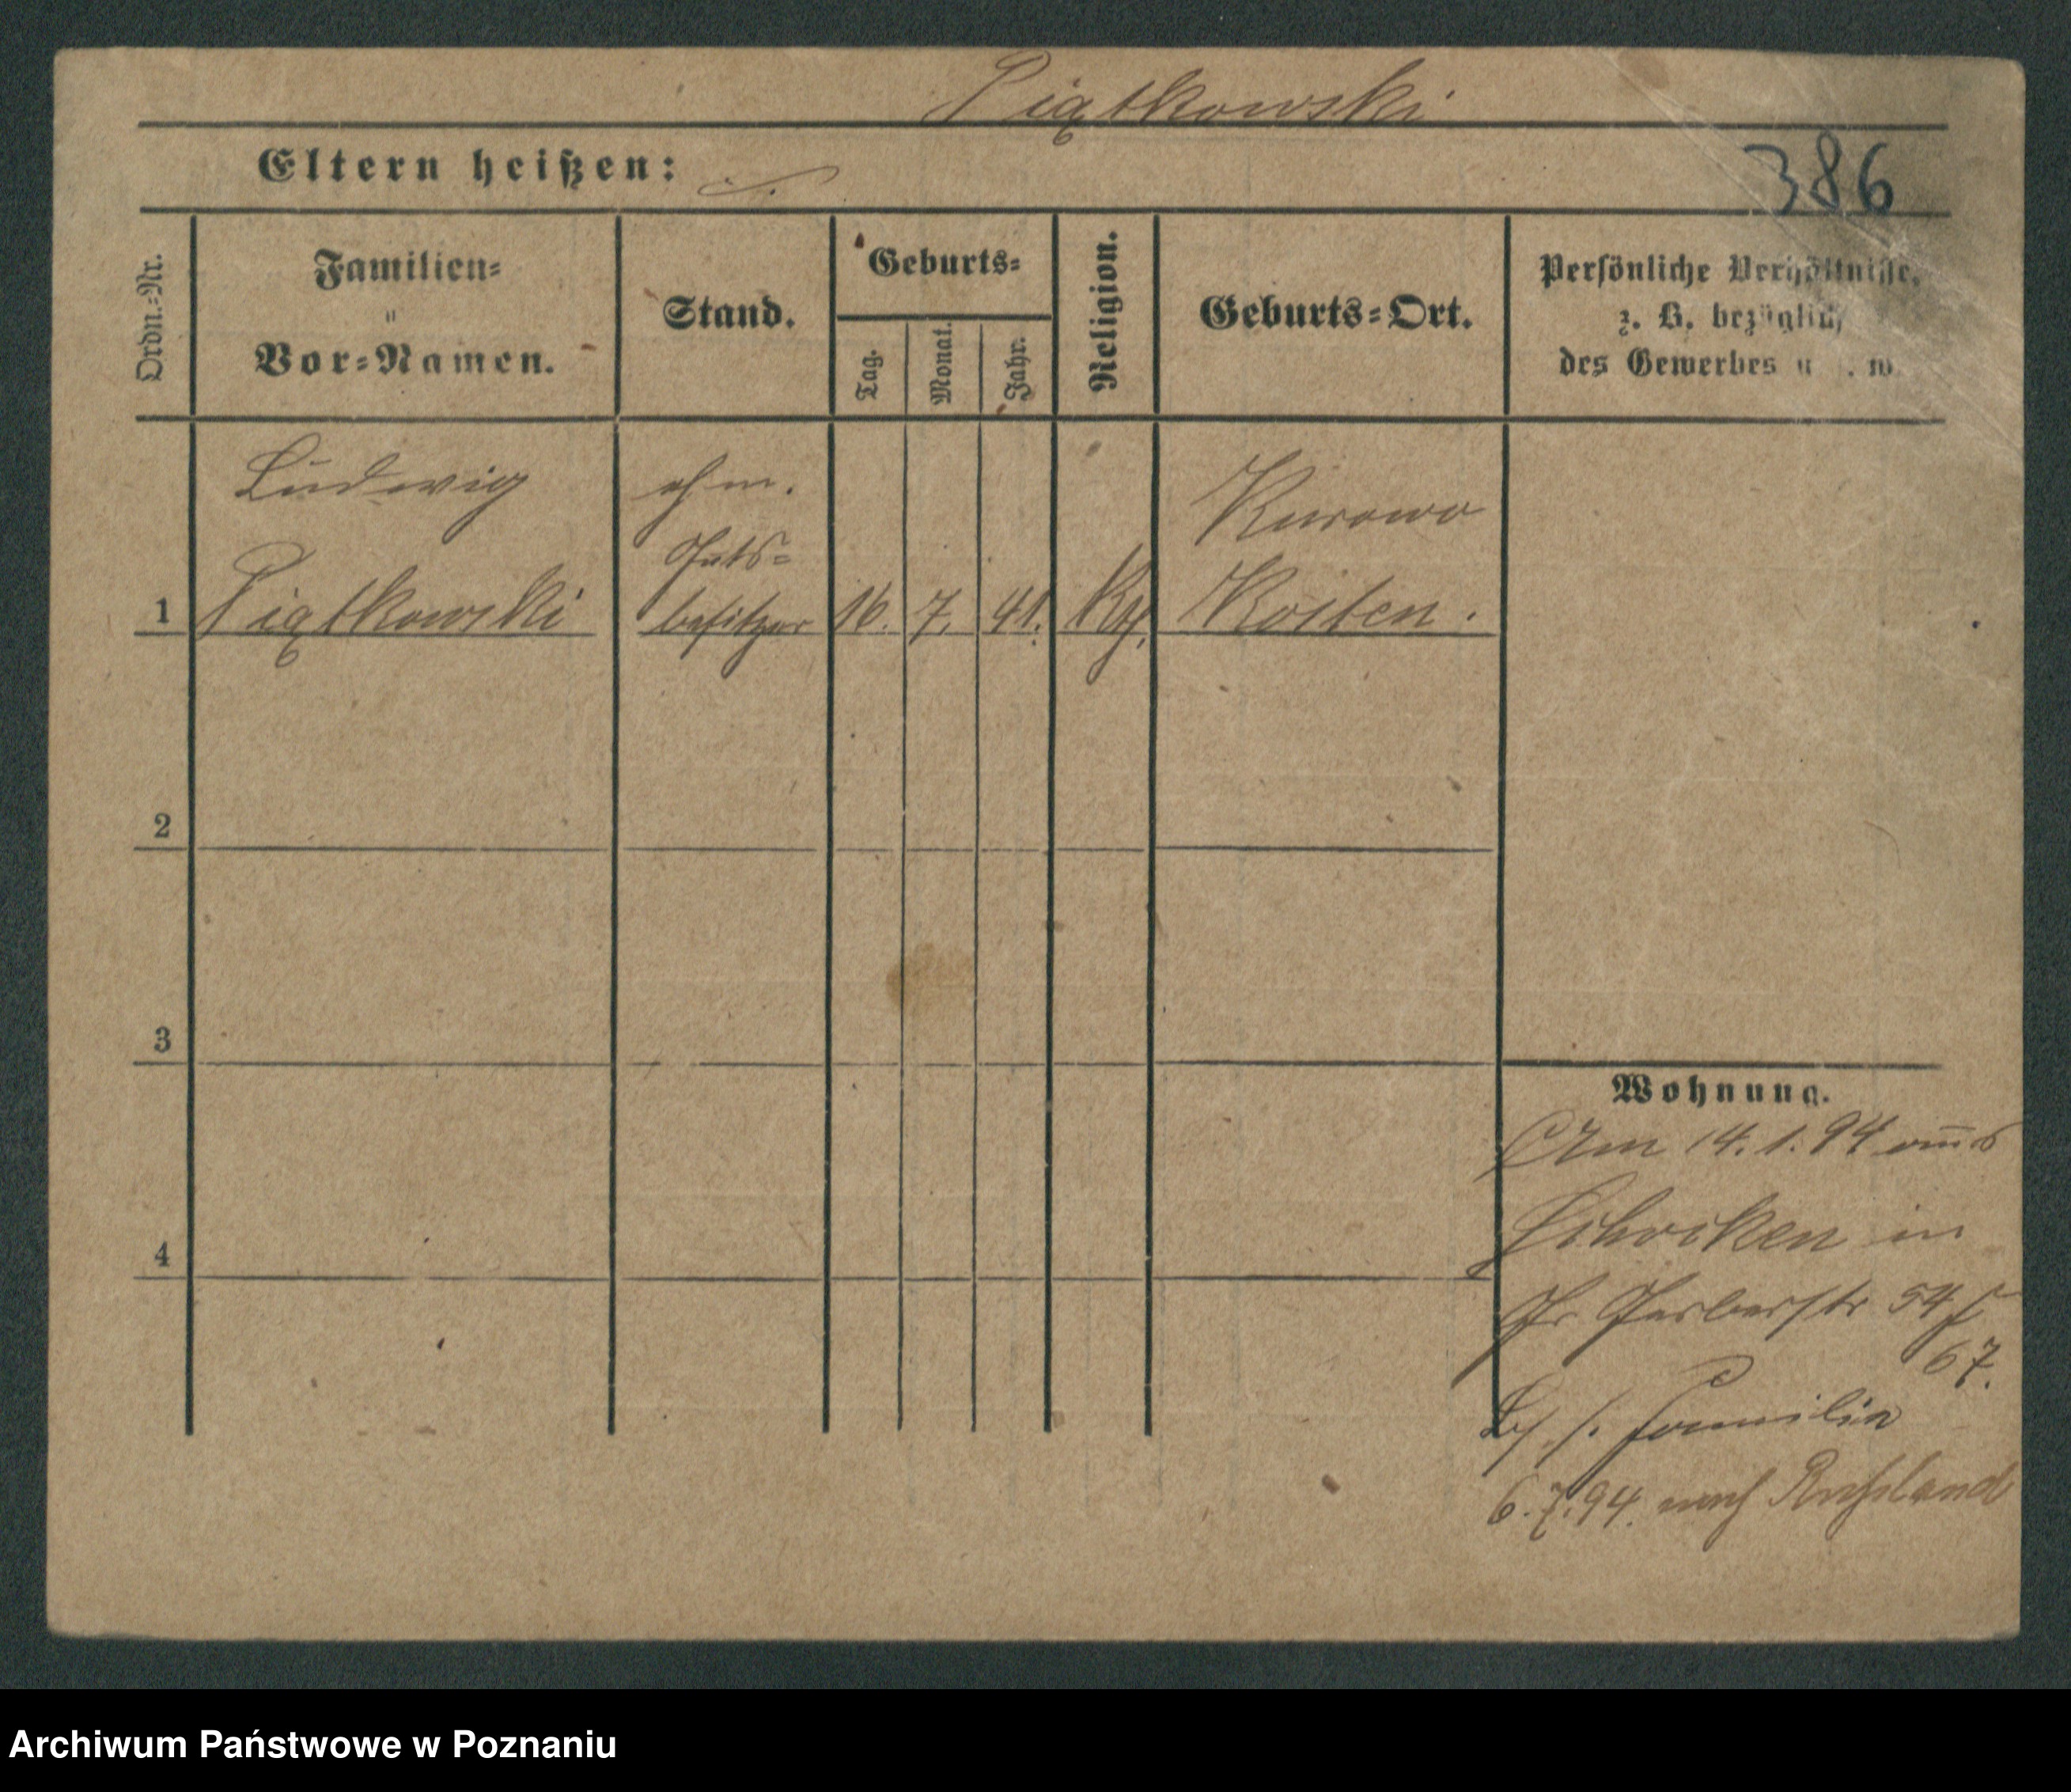 Piątkowski
Eltern heißen: ./.
386
Ordn.-Nr.
Familien-
u
Vor-Namen.
Stand.
Geburts-
Tag.
Monat.
Jahr.
Religion.
Geburts-Ort.
Persönliche Verhältnisse,
z. B. bezüglich
des Gewerbes u. s. w.
Ludwig
ehm.
Kurowo
Guts-
1 Piątkowski besitzer 16. 7. 41. Kth. Kosten.
2
3
4
Wohnung.
Am 14. 1. 94 aus
in
Gr Gerberstr 54
67.
s. Familie
6.7.94. nach Russland
Archiwum Państwowe w Poznaniu